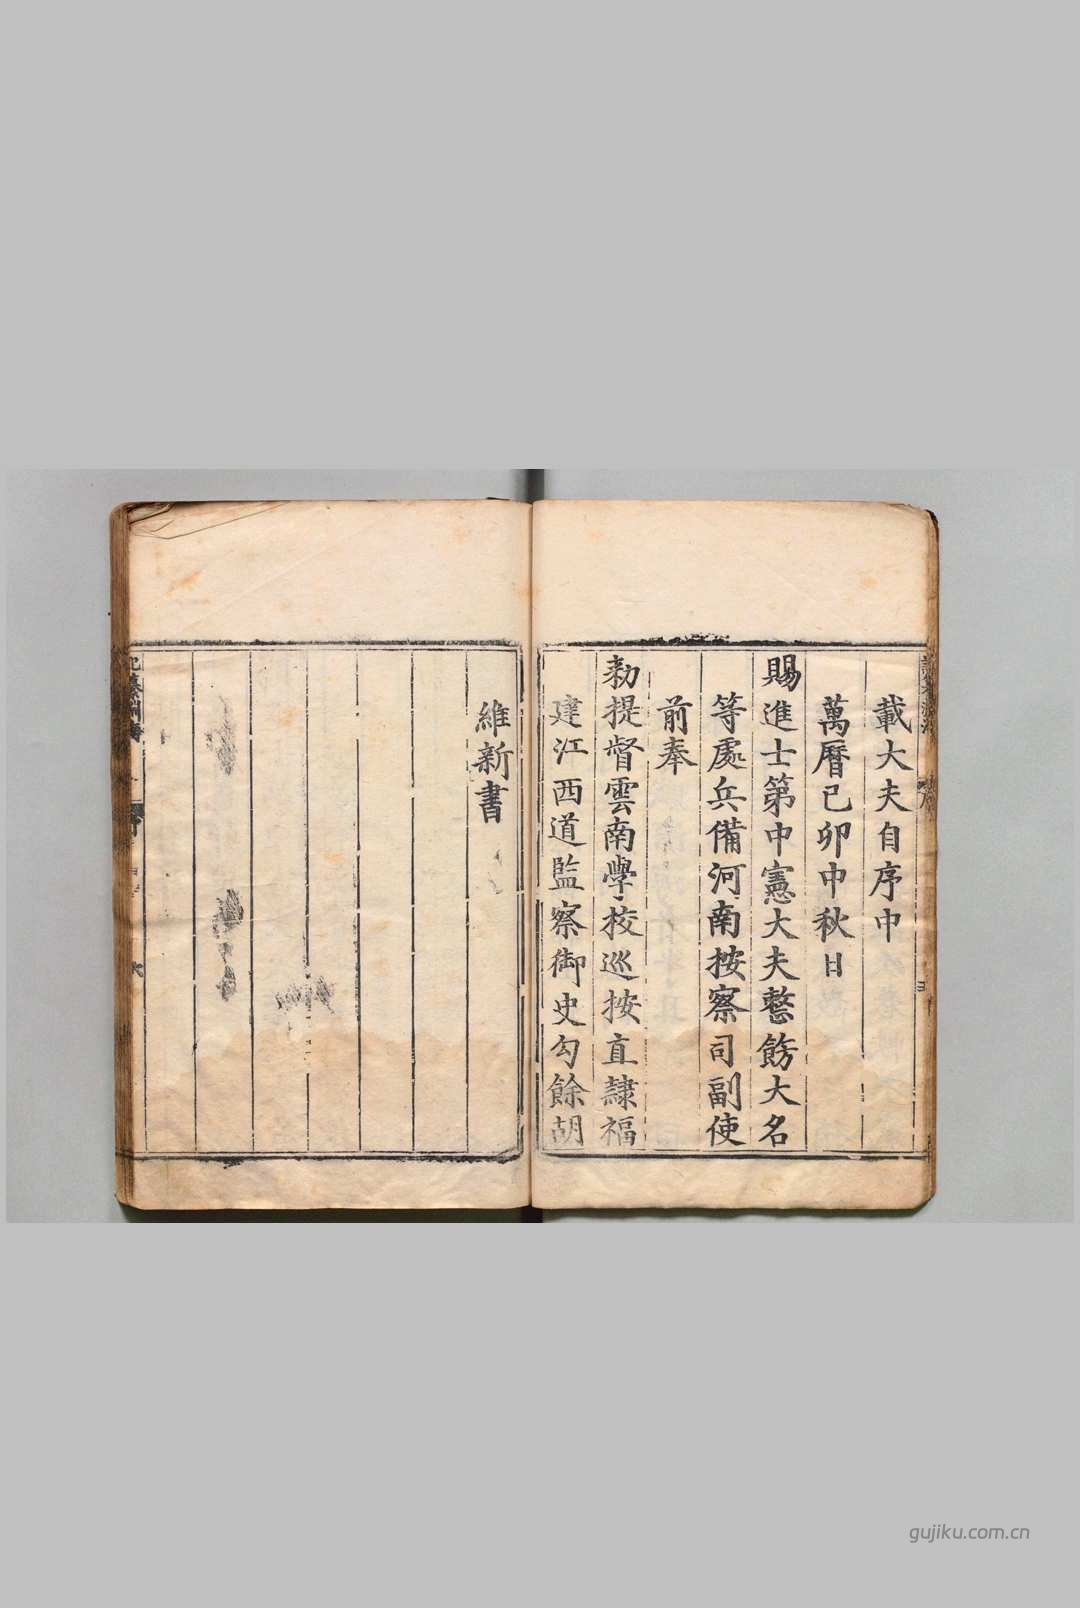 載大夫自序中
萬曆己卯中秋日
賜進士第中憲大夫整飭大名
等處兵備河南按察司副使
前奉
勑提督雲南學校巡按直隸福
建江西道監察御史勾餘胡
維新書
gujiku.com.cn